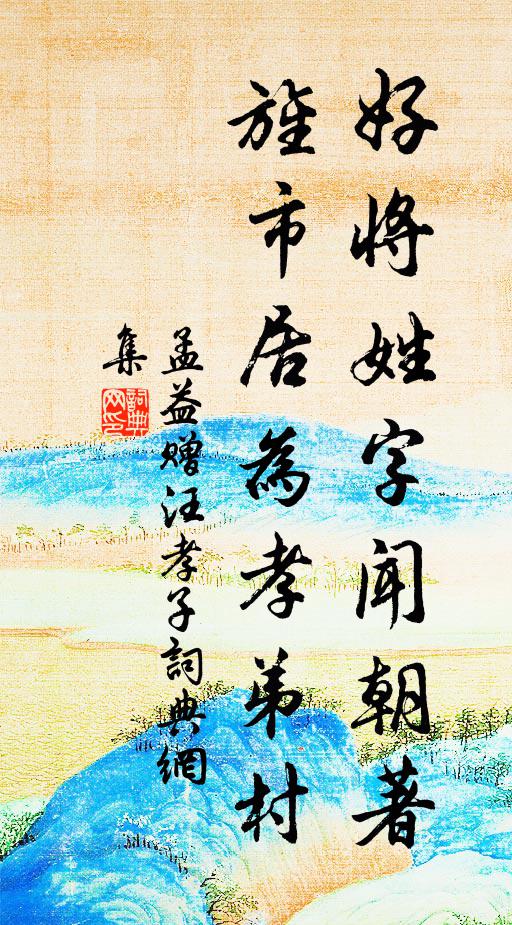 好將姓字聞朝著
旌市居為孝弟村
孟益赠汪孝子詞典網
集
詞典网印